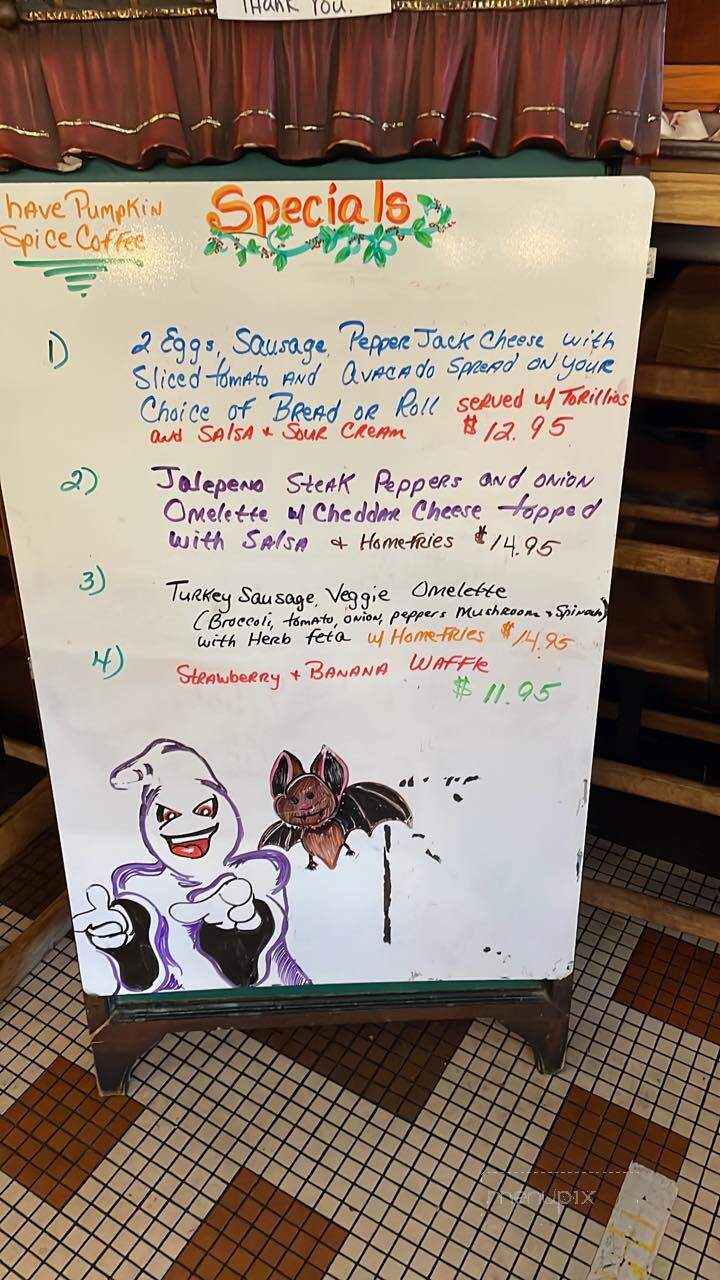 THANK YOU.
have Pumpkin
Spice Coffee
Specials
1) 2 Eggs, Sausage, Pepper Jack Cheese with
Sliced tomato AND AVACADO SPREAD ON YOUR
Choice of BREAD OR Roll served w/ Torillias
and SALSA + SOUR CREAM $12.95
2) Jalepeno STEAK Peppers and ONION
Omelette w/ CHEDDAR Cheese topped
with SALSA & Homefries $14.95
3) TURKEY Sausage, Veggie Omelette
(Broccoli, tomato, onion, peppers Mushroom + Spinach)
with Herb feta w/ Homefries $14.95
4) STRAWBERRY + BANANA WAFFle
$11.95
menupix